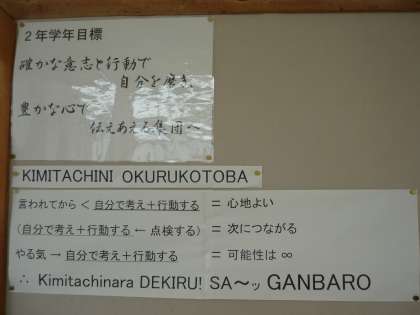 2年学年目標
確かな意志と行動で
自分を磨き、
豊かな心で
伝えあえる集団へ
KIMITACHINI OKURUKOTOBA
言われてから < 自分で考え+行動する = 心地よい
(自分で考え+行動する ← 点検する) = 次につながる
やる気 → 自分で考え+行動する = 可能性は ∞
∴ Kimitachinara DEKIRU! SA〜ッ GANBARO